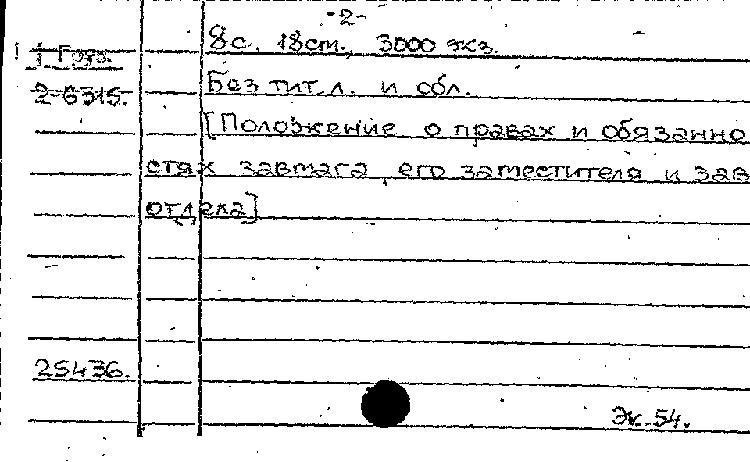 -2-
8с. 18см., 3000 экз.
2-6315.
Без тит.л. и обл.
[Положение о правах и обязанно
стях завмага, его заместителя и зав
отдела]
25436.
Эк.54.